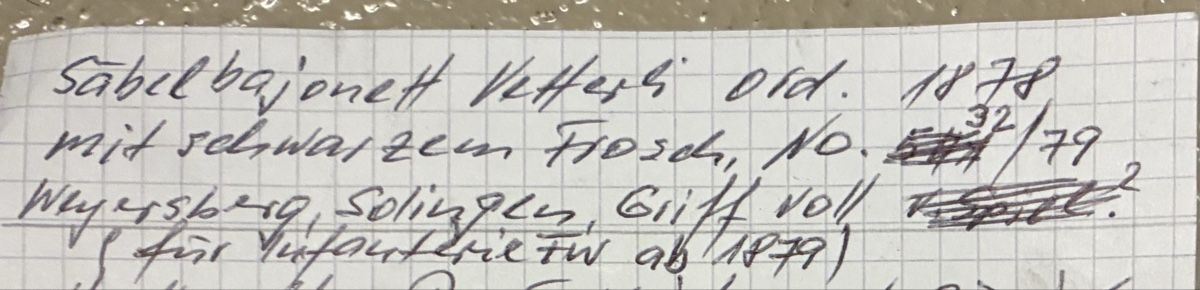 Säbelbajonett Vetterli Ord. 1878
mit schwarzem Frosch, No. 32/79
Weyersberg, Solingen, Griff voll
(für Infanterie Fw ab 1879)